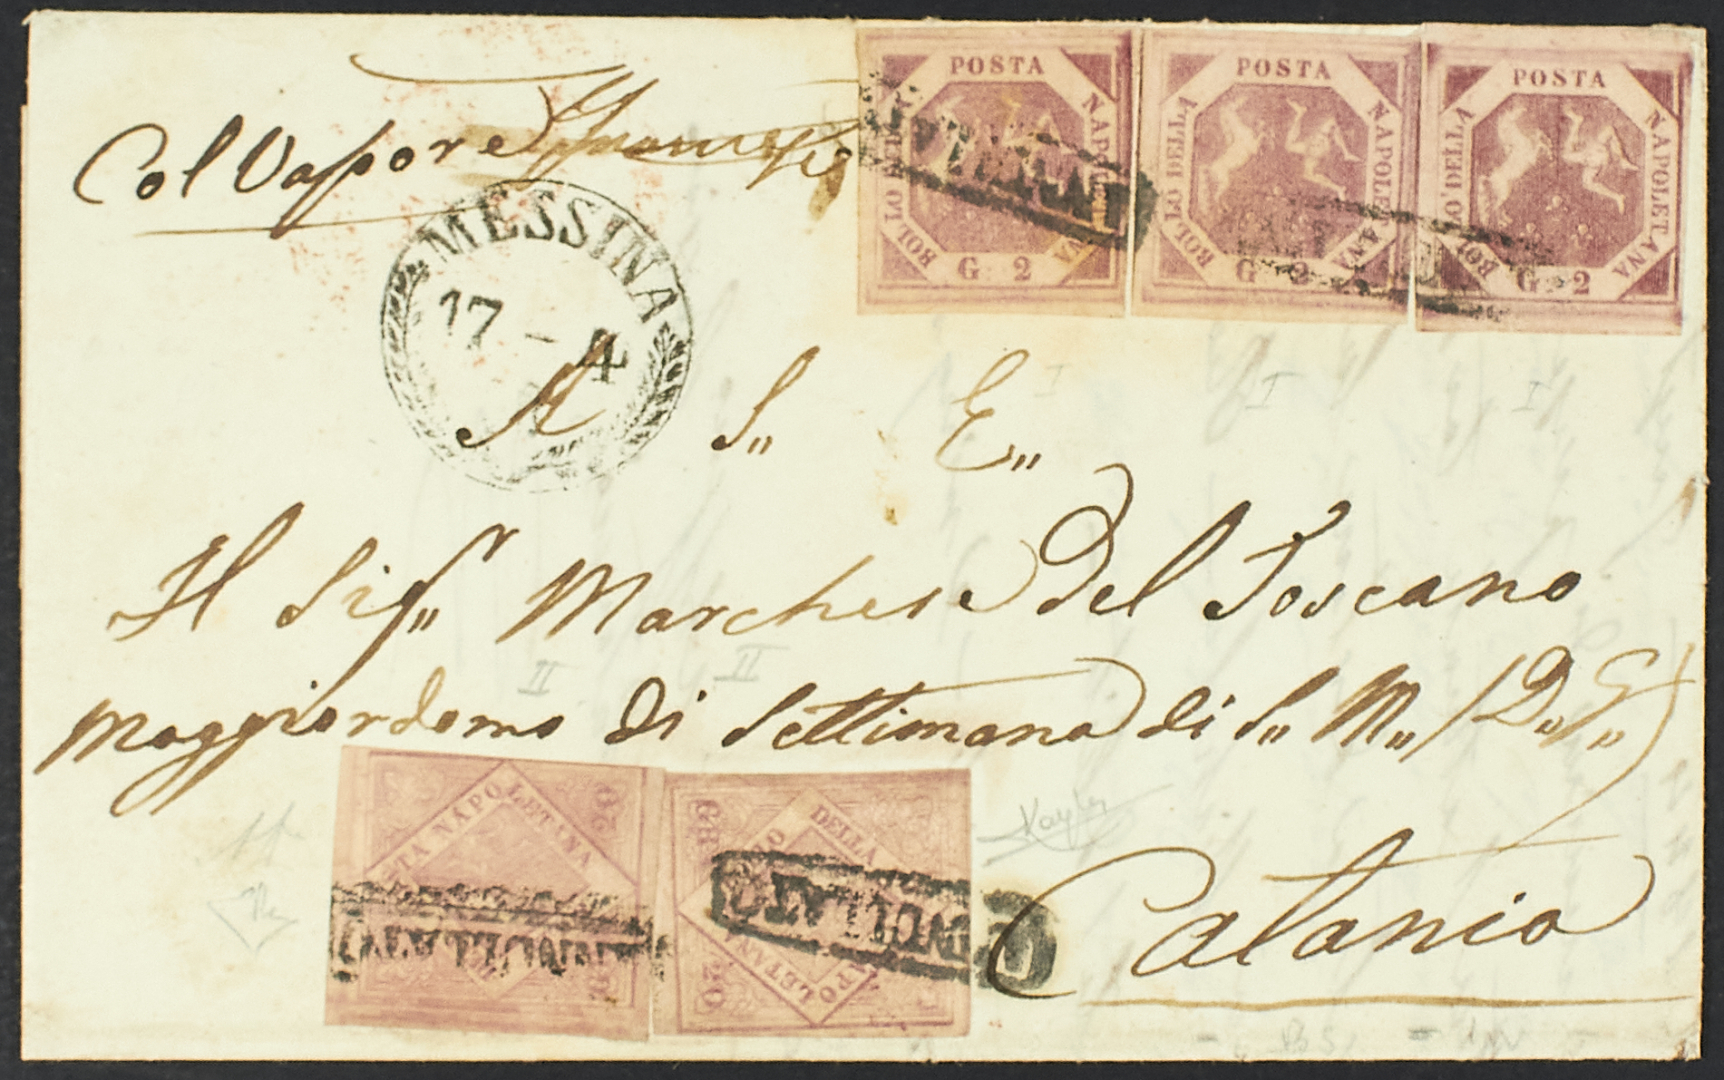 Col Vapore
POSTA NAPOLETANA
BOLLO DELLA
G 2
POSTA NAPOLETANA
BOLLO DELLA
G 2
POSTA NAPOLETANA
BOLLO DELLA
G 2
ANNULLATO
MESSINA
17 - 4
A S,, E,,
I I I
Il Sigr,, Marchese Del Toscano
II II
Maggiordomo di Settimana di S,, M,, (D,, G,,)
POSTA NAPOLETANA
G 20
ANNULLATO
BOLLO DELLA
POSTA NAPOLETANA
G 20
ANNULLATO
Catania